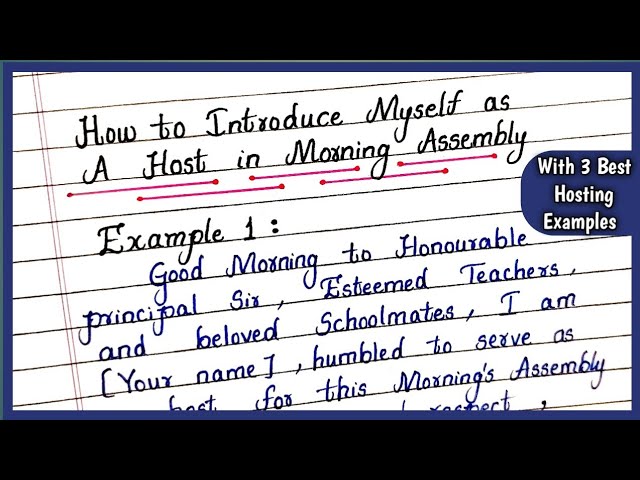 How to Introduce Myself as
A Host in Morning Assembly
With 3 Best
Hosting
Examples
Example 1 :
Good Morning to Honourable
principal Sir, Esteemed Teachers,
and beloved Schoolmates, I am
[Your name], humbled to serve as
host for this Morning's Assembly
respect,